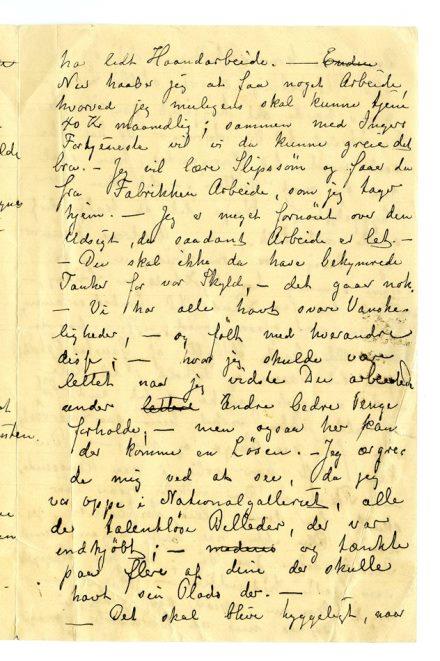 ha lidt Haandarbeide. — Endnu
Nu haaber jeg at faa noget Arbeide,
hvorved jeg muligens skal kunne tjene
40 Kr maanedlig; sammen med Ingers
Fortjeneste vil vi da kunne greie det
bra. — Jeg vil lære Slipssøm og faar da
fra Fabrikken Arbeide, som jeg tager
hjem. — Jeg er meget fornøiet over den
Udsigt, da saadant Arbeide er let. —
— Du skal ikke da have bekymrede
Tanker for vor Skyld, — det gaar nok.
— Vi har alle havt svære Vanske
ligheder, — og følt med hverandre
disse; — hvor jeg skulde være
lettet naar jeg vidste Du arbeidede
under lettere Endre bedre Penge
forholde; — men ogsaa her kan
der komme en Løsen. — Jeg ærgre
de mig ved at see, da jeg
var oppe i Nationalgalleriet, alle
de talentløse Billeder, der var
indkjøbt; — og tænkte
paa flere af dine der skulle
havt sin Plads der. —
— Det skal blive hyggeligt, naar